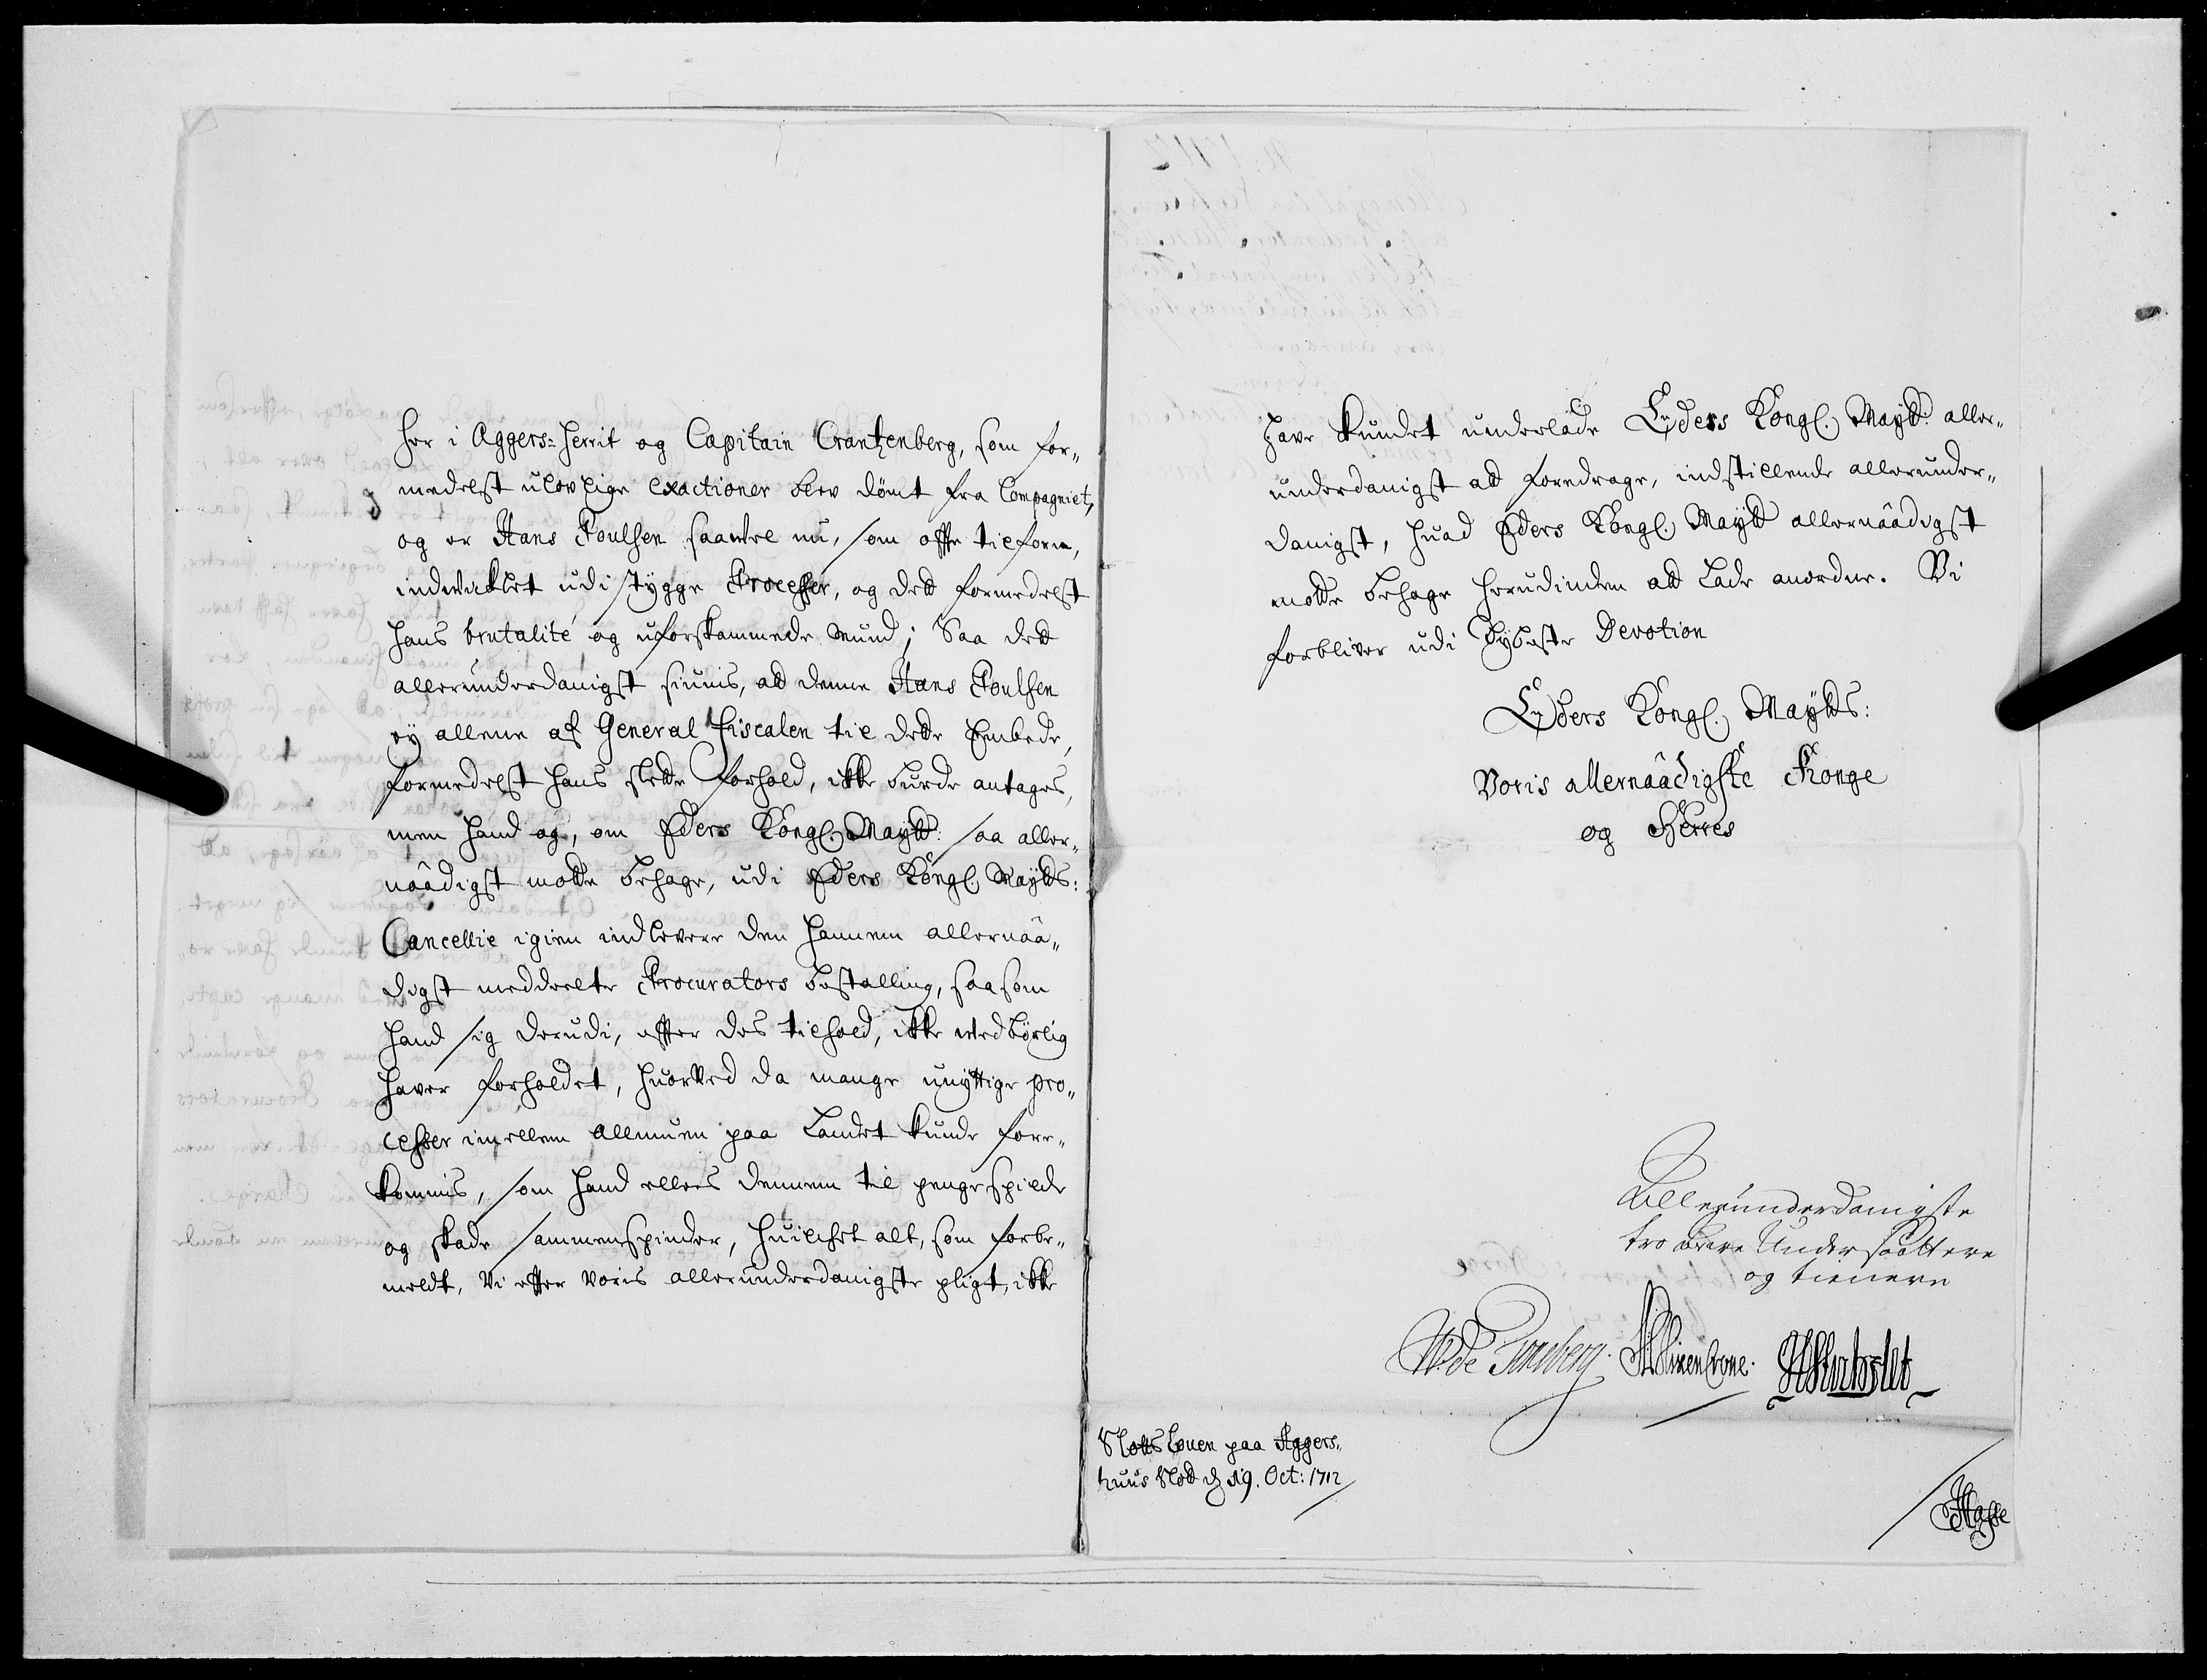 her i Aggers-herrit og Capitain Crantzenberg, som for„
medelst ulovlige exactioner blev dømt fra Compagniet,
og er Hans Poulsen saavel nu, som offte tilforn,
indviklet udi stygge Processer, og det formedelst
hans brutalité og uforskammede mund; Saa det
allerunderdanigst siunis, att denne Hans Poulsen
ey allene af General Fiscalen til dette Embede,
formedelst hans slette forhold, ikke burde antages,
men hand og, om Eders Kongl. Maytt: saa aller„
naådigst motte behage, udi Eders Kongl. Maytts:
Cancellie igien indlevere den hannem allernaå„
digst meddeelte Procurators bestalling, saasom
hand sig derudi, effter des tilhold, ikke vedbørlig
haver forholdet, huorved da mange unyttige pro„
cesser imellem Allmuen paa Landet kunde fore„
kommis, som hand ellers dennem til pengespilde
og skade sammenspinder, huilchet alt, som forbe„
meldt, Vi effter voris allerunderdanigste pligt, ikke
have kundet underlade Eders Kongl. Maytt: aller„
underdanigst att foredrage, indstillende allerunder„
danigst, huad Eders Kongl. Maytt allernaådigst
motte behage herudinden att lade anordne. Vi
forbliver udi dybeste Devotion
Eders Kongl. Maytts:
Voris allernaådigste Konge
og Herres
Allerunderdanigste
troe Undersaattere
og tienere
W: de Tonsberg. Vlixencrone.
Slotts Loven paa Aggers„
huus Slott d 19. Oct: 1712
Hasse